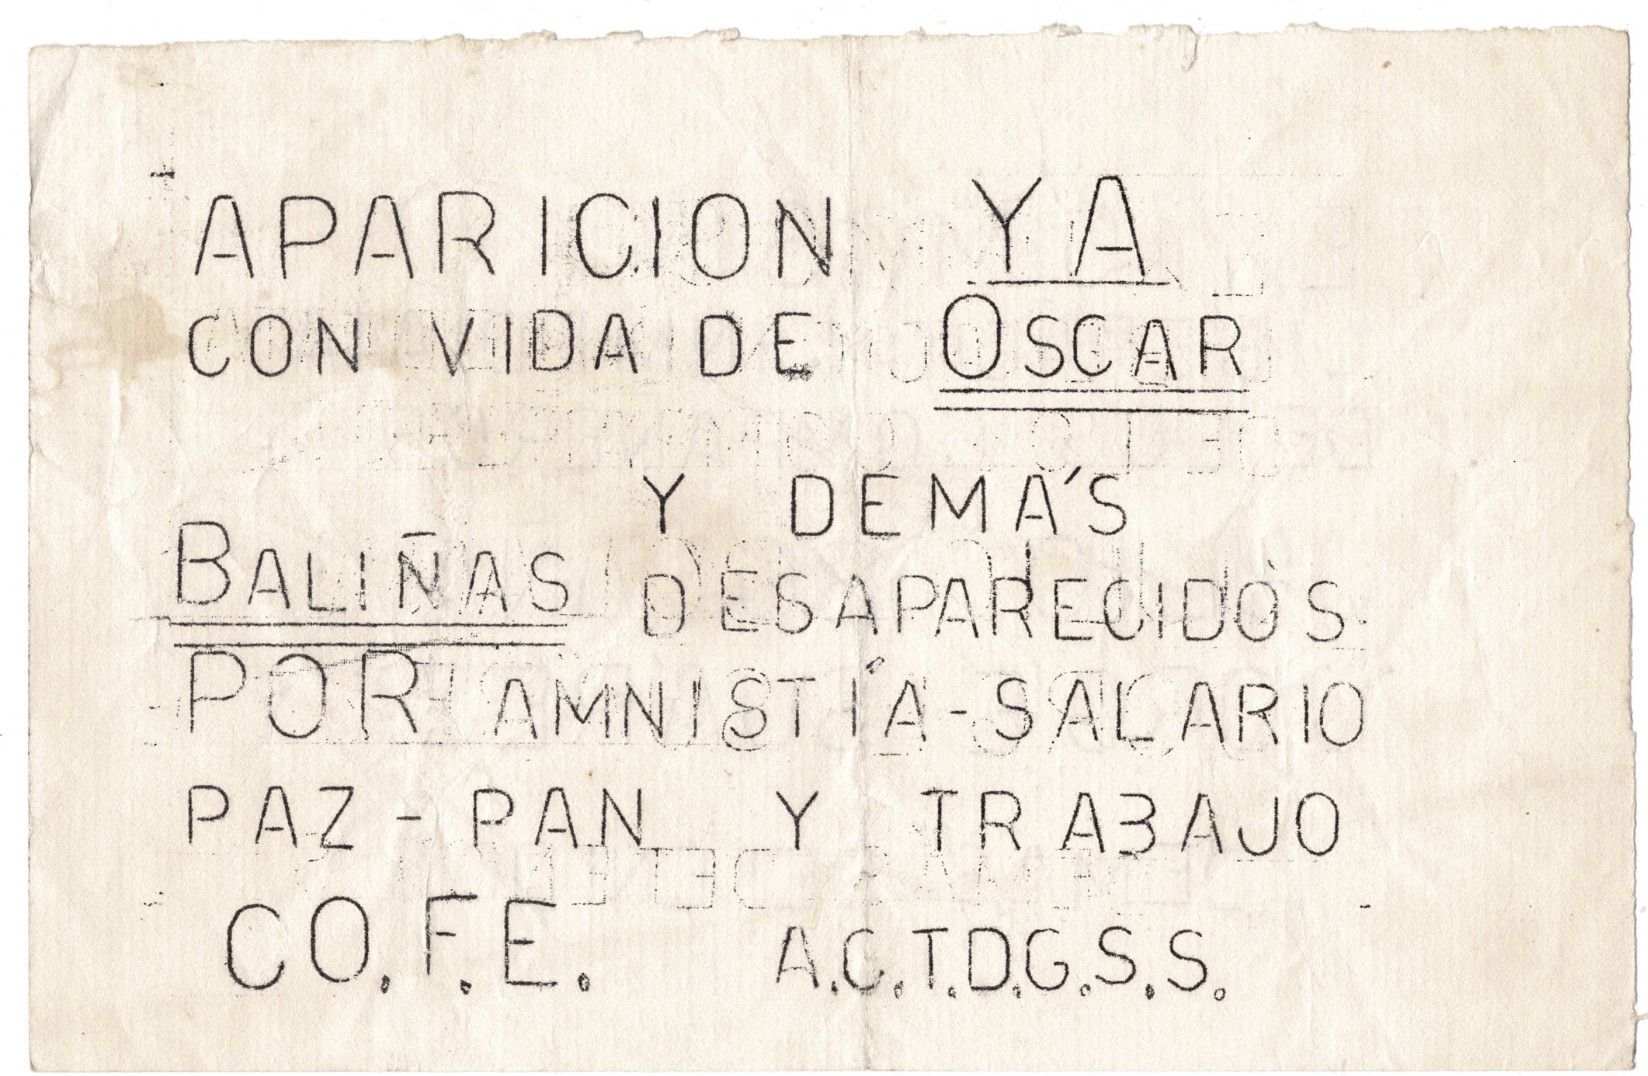 APARICION YA
CON VIDA DE OSCAR
Y DEMÁS
BALIÑAS DESAPARECIDOS
POR AMNISTÍA-SALARIO
PAZ-PAN Y TRABAJO
CO.F.E. A.C.T.D.G.S.S.